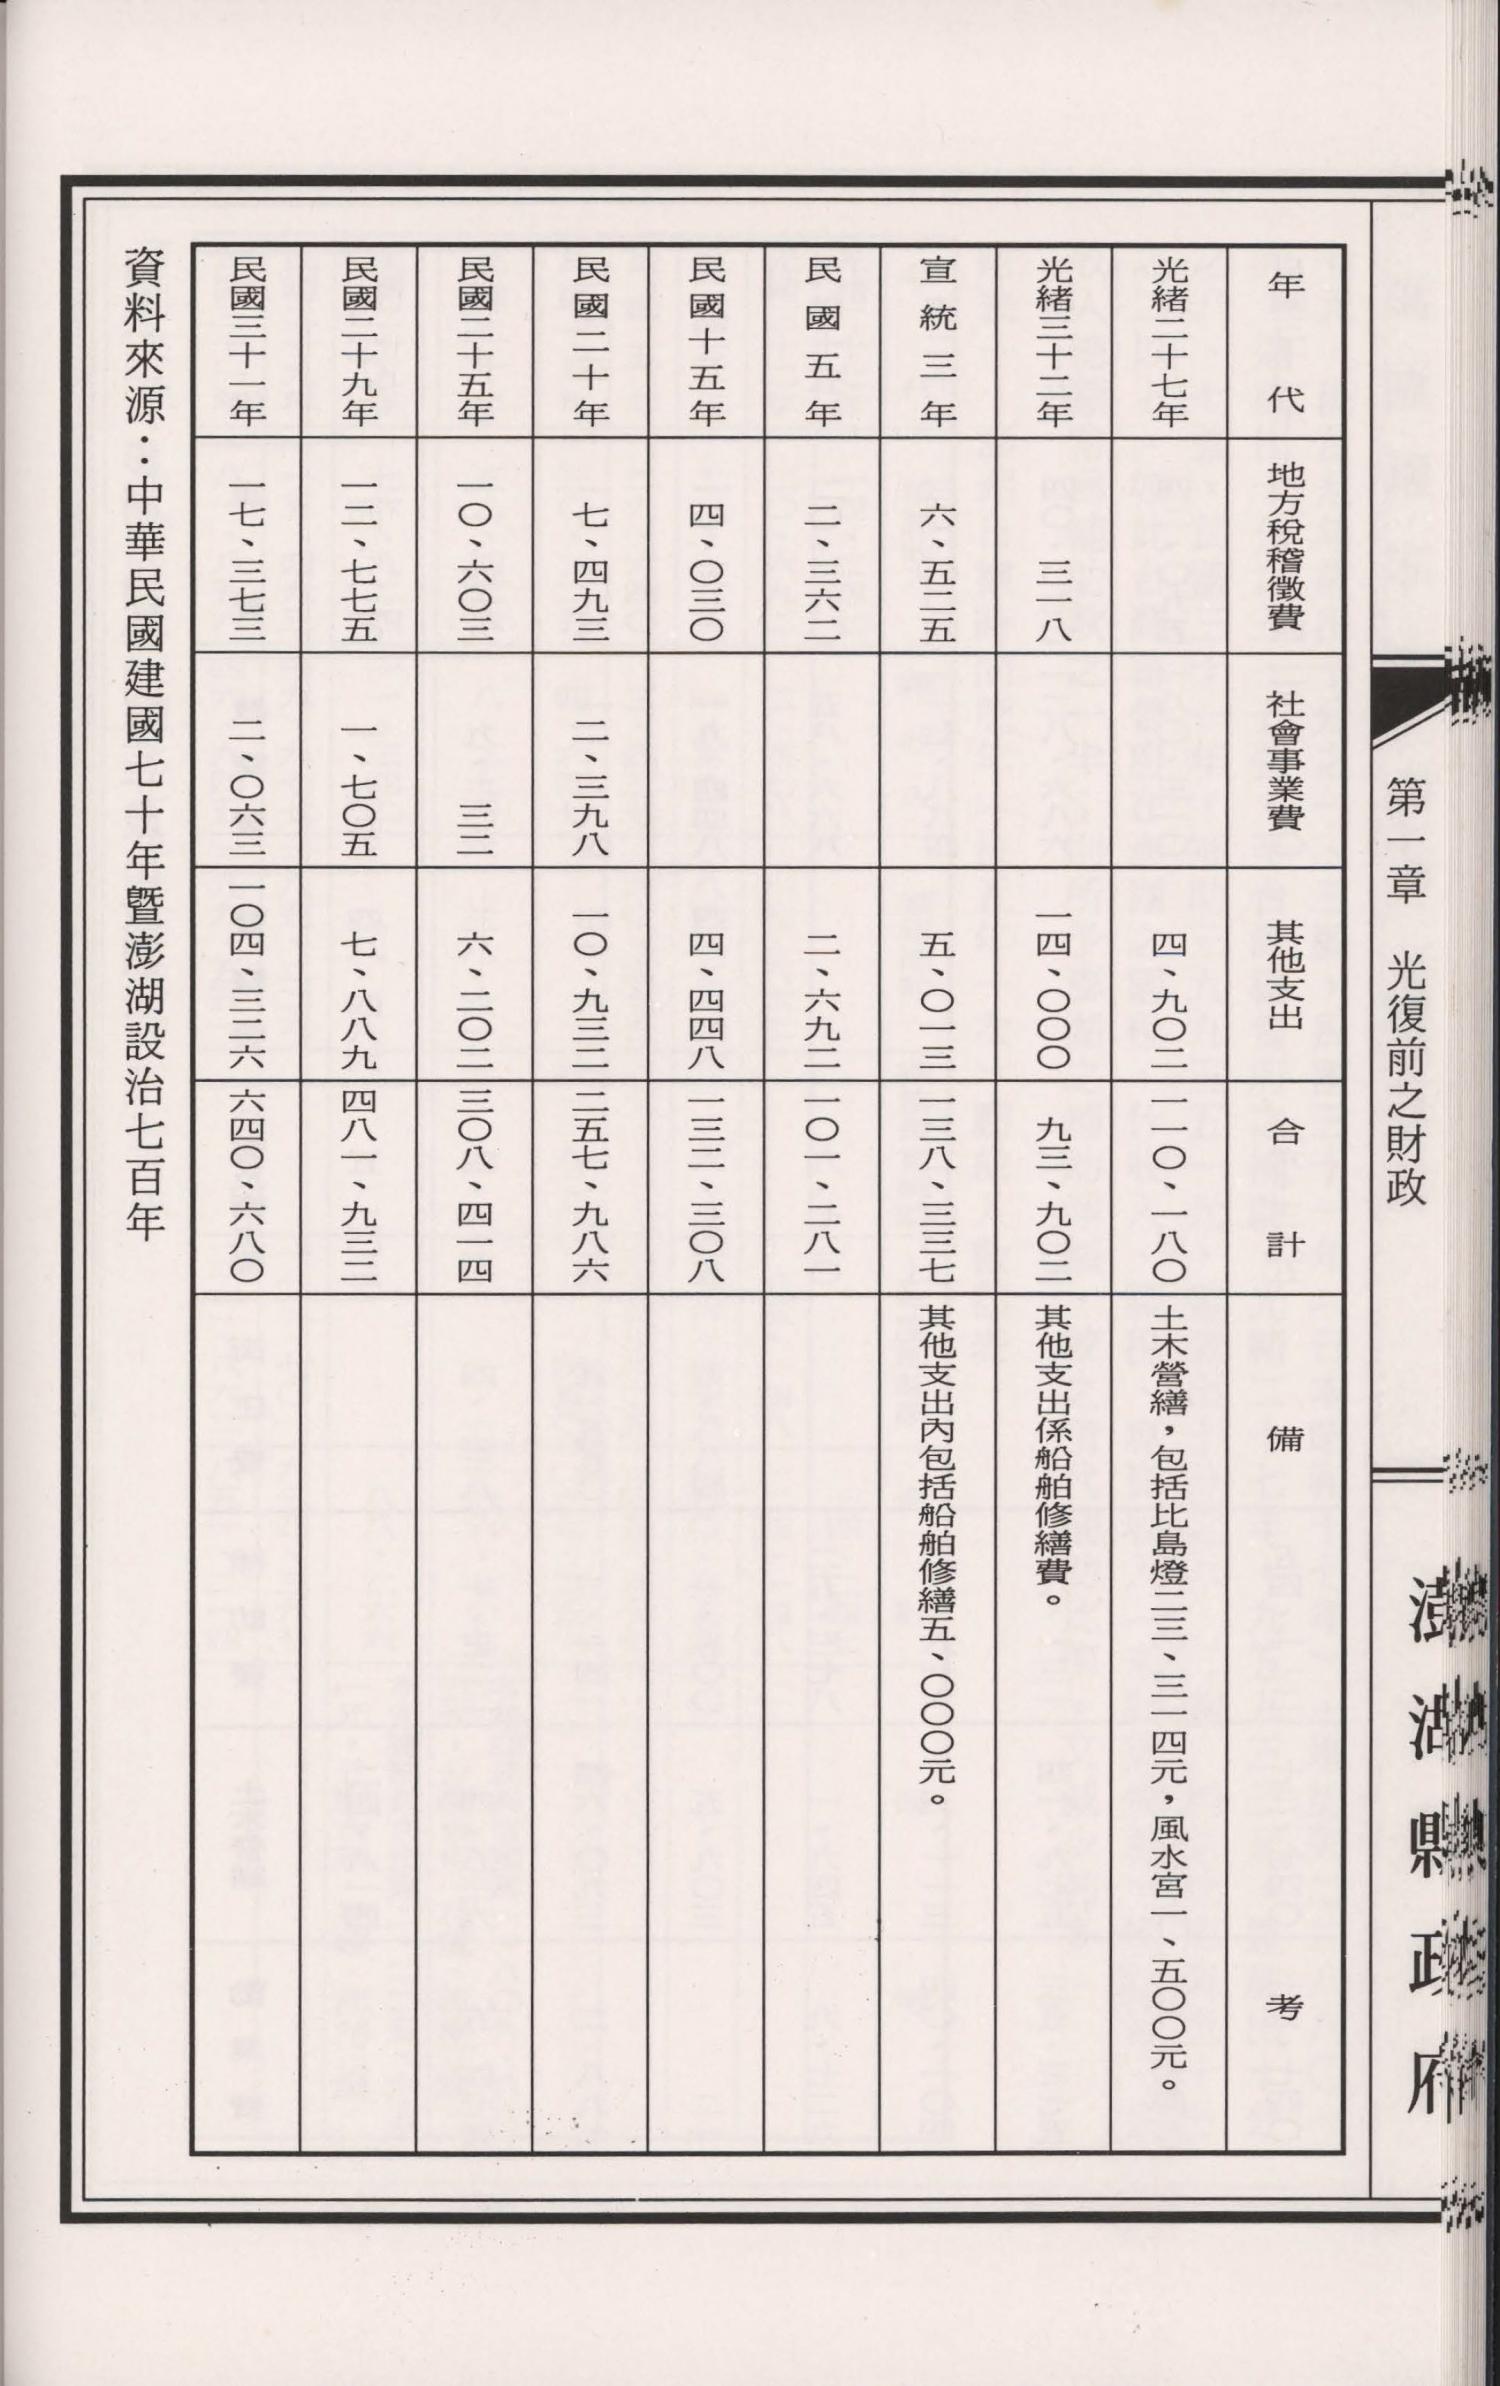 第一章　光復前之財政
澎湖縣政府
年代　地方稅稽徵費　社會事業費　其他支出　合計　備考
光緒二十七年　四、九〇二　一一〇、一八〇　土木營繕，包括比島燈二三、三一四元，風水宮一、五〇〇元。
光緒三十二年　三一八　一四、〇〇〇　九三、九〇二　其他支出係船舶修繕費。
宣統三年　六、五二五　五、〇一三　一三八、三三七　其他支出內包括船舶修繕五、〇〇〇元。
民國五年　二、三六二　二、六九二　一〇一、二八一
民國十五年　四、〇三〇　四、四四八　一三二、三〇八
民國二十年　七、四九三　二、三九八　一〇、九三二　二五七、九八六
民國二十五年　一〇、六〇三　三二　六、二〇二　三〇八、四一四
民國二十九年　一二、七七五　一、七〇五　七、八八九　四八一、九三二
民國三十一年　一七、三七三　二、〇六三　一〇四、三二六　六四〇、六八〇
資料來源：中華民國建國七十年暨澎湖設治七百年